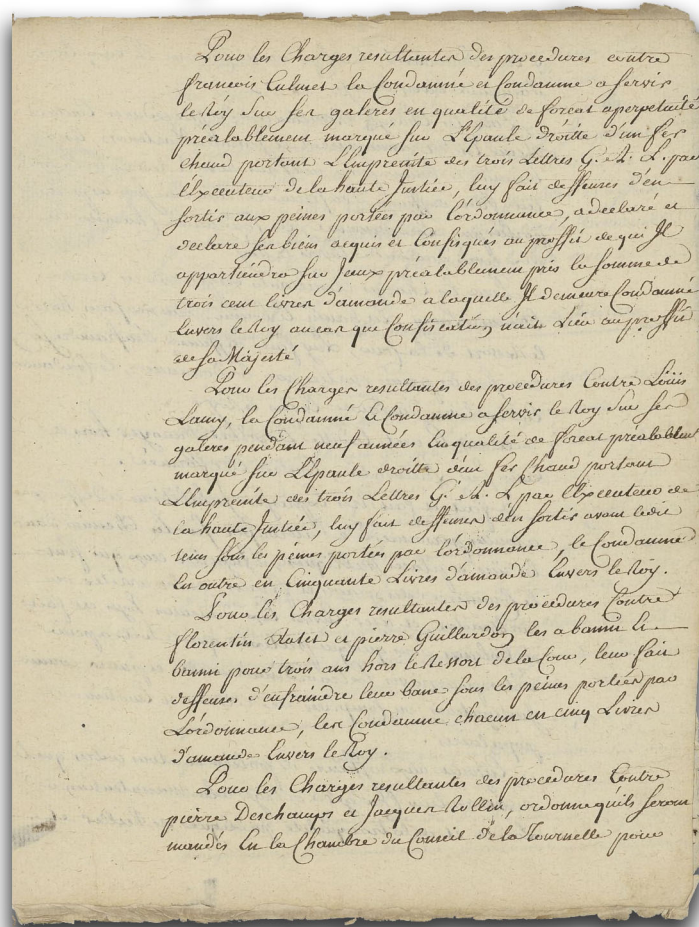 Pour les Charges resultantes des procedures contre
francois Culmet la Condamné et Condamne a servir
le Roy Sur ses galeres en qualité de forcat aperpetuité
préalablement marqué sur L'Epaule droitte d'un fer
chaud portant L'Empreinte des trois Lettres G. A. L. par
l'Executeur de la haute Justice, luy fait deffenses d'en
sortir aux peines portées par l'ordonnance, a declaré et
declare ses biens acquis et Confisqués au proffit de qui Il
appartiendra sur Iceux préalablement pris la somme de
trois cent livres d'amande a laquelle Il demeure Condamné
Envers le Roy au cas que Confiscation n'ait Lieu au proffit
de sa Majesté
Pour les Charges resultantes des procedures Contre Louis
Lamy, la Condamné & Condamne a servir le Roy Sur ses
galeres pendant neuf années En qualité de forcat prealablem̄t
marqué sur L'Epaule droitte d'un fer Chaud portant
L'Empreinte des trois Lettres G. A. L par l'Executeur de
la haute Justice, luy fait deffenses d'en sortir avant ledit
tems sous les peines portées par l'ordonnance, le Condamne
En outre en Cinquante Livres d'amande Envers le Roy.
Pour les Charges resultantes des procedures Contre
florentin et pierre Guillardon les a banni &
banni pour trois ans hors le Ressort de la Cour, leur fait
deffenses d'enfraindre leur banc sous les peines portées par
L'ordonnance, les Condamne chacun en cinq Livres
d'amande Envers le Roy.
Pour les Charges resultantes des procedures Contre
pierre Deschamps et Jacques Rollin, ordonne quils seront
mandés En la Chambre du Conseil de la Tournelle pour